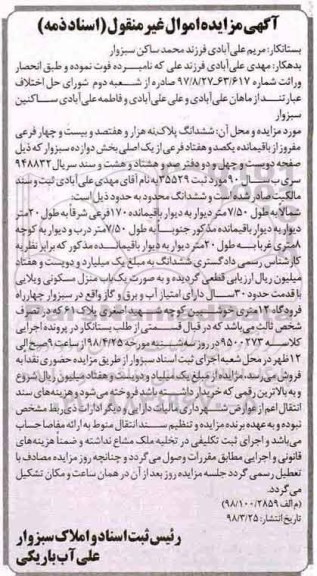 آگهی مزایده اموال غیر منقول (اسناد ذمه)
بستانکار: مریم علی‌آبادی فرزند محمد ساکن سبزوار
بدهکار: مهدی علی‌آبادی فرزند علی که نامبرده فوت نموده و طبق انحصار
وراثت شماره ۶۳/۶۱۷-۹۷/۸/۲۷ صادره از شعبه دوم شورای حل اختلاف
عبارتند از ماهان علی‌آبادی و علی علی‌آبادی و فاطمه علی‌آبادی ساکنین
سبزوار
مورد مزایده و محل آن: ششدانگ پلاک نه هزار و هفتصد و بیست و چهار فرعی
مفروز از باقیمانده یکصد و هفتاد فرعی از یک اصلی بخش دوازده سبزوار که ذیل
صفحه دویست و چهل و دو دفتر صد و هشتاد و هشت و سند سریال ۹۴۸۸۳۲
سری ب سال ۹۰ مورد ثبت ۳۵۵۲۹ به نام آقای مهدی علی‌آبادی ثبت و سند
مالکیت صادر شده است و ششدانگ محدود به حدود ذیل است:
شمالا به طول ۷/۵۰ متر دیوار به دیوار باقیمانده ۱۷۰ فرعی شرقا به طول ۲۰ متر
دیوار به دیوار باقیمانده مذکور جنوبا به طول ۷/۵۰ متر درب و دیوار به کوچه
۸ متری غربا به طول ۲۰ متر دیوار به دیوار باقیمانده مذکور که برابر نظریه
کارشناس رسمی دادگستری ششدانگ به مبلغ یک میلیارد و دویست و هفتاد
میلیون ریال ارزیابی قطعی گردیده و به صورت یک باب منزل مسکونی ویلایی
با قدمت حدود ۳۰ سال دارای امتیاز آب و برق و گاز واقع در سبزوار چهارراه
فرودگاه ۱۲ متری خوشبین کوچه شهید اصغری پلاک ۶۱ که در تصرف
شخص ثالث می‌باشد که در قبال قسمتی از طلب بستانکار در پرونده اجرایی
کلاسه ۹۵۰۰۲۷۳ در روز سه‌شنبه مورخه ۹۸/۴/۲۵ از ساعت ۹ صبح الی
۱۲ ظهر در محل شعبه اجرای ثبت اسناد سبزوار از طریق مزایده حضوری نقدا به
فروش می‌رسد. مزایده از مبلغ یک میلیارد و دویست و هفتاد میلیون ریال شروع
و به بالاترین رقمی که خریدار داشته باشد فروخته می‌شود و هزینه‌های سند
انتقال اعم از عوارض شهرداری مالیات دارایی و دیگر ادارات ذیربط مشخص
نبوده و به عهده برنده مزایده و تنظیم سند انتقال منوط به ارائه مفاصا حساب
می‌باشد و اجرای ثبت تکلیفی در تخلیه ملک مشاع نداشته و ضمنا هزینه‌های
قانونی و اجرایی مطابق مقررات وصول می‌گردد و چنانچه روز مزایده مصادف با
تعطیل رسمی گردد جلسه مزایده روز بعد از آن در همان ساعت و مکان تشکیل
می‌گردد.
(م الف ۹۸/۱۰۰/۲۸۵۹)
تاریخ انتشار: ۹۸/۳/۲۵
رئیس ثبت اسناد و املاک سبزوار
علی آب باریکی